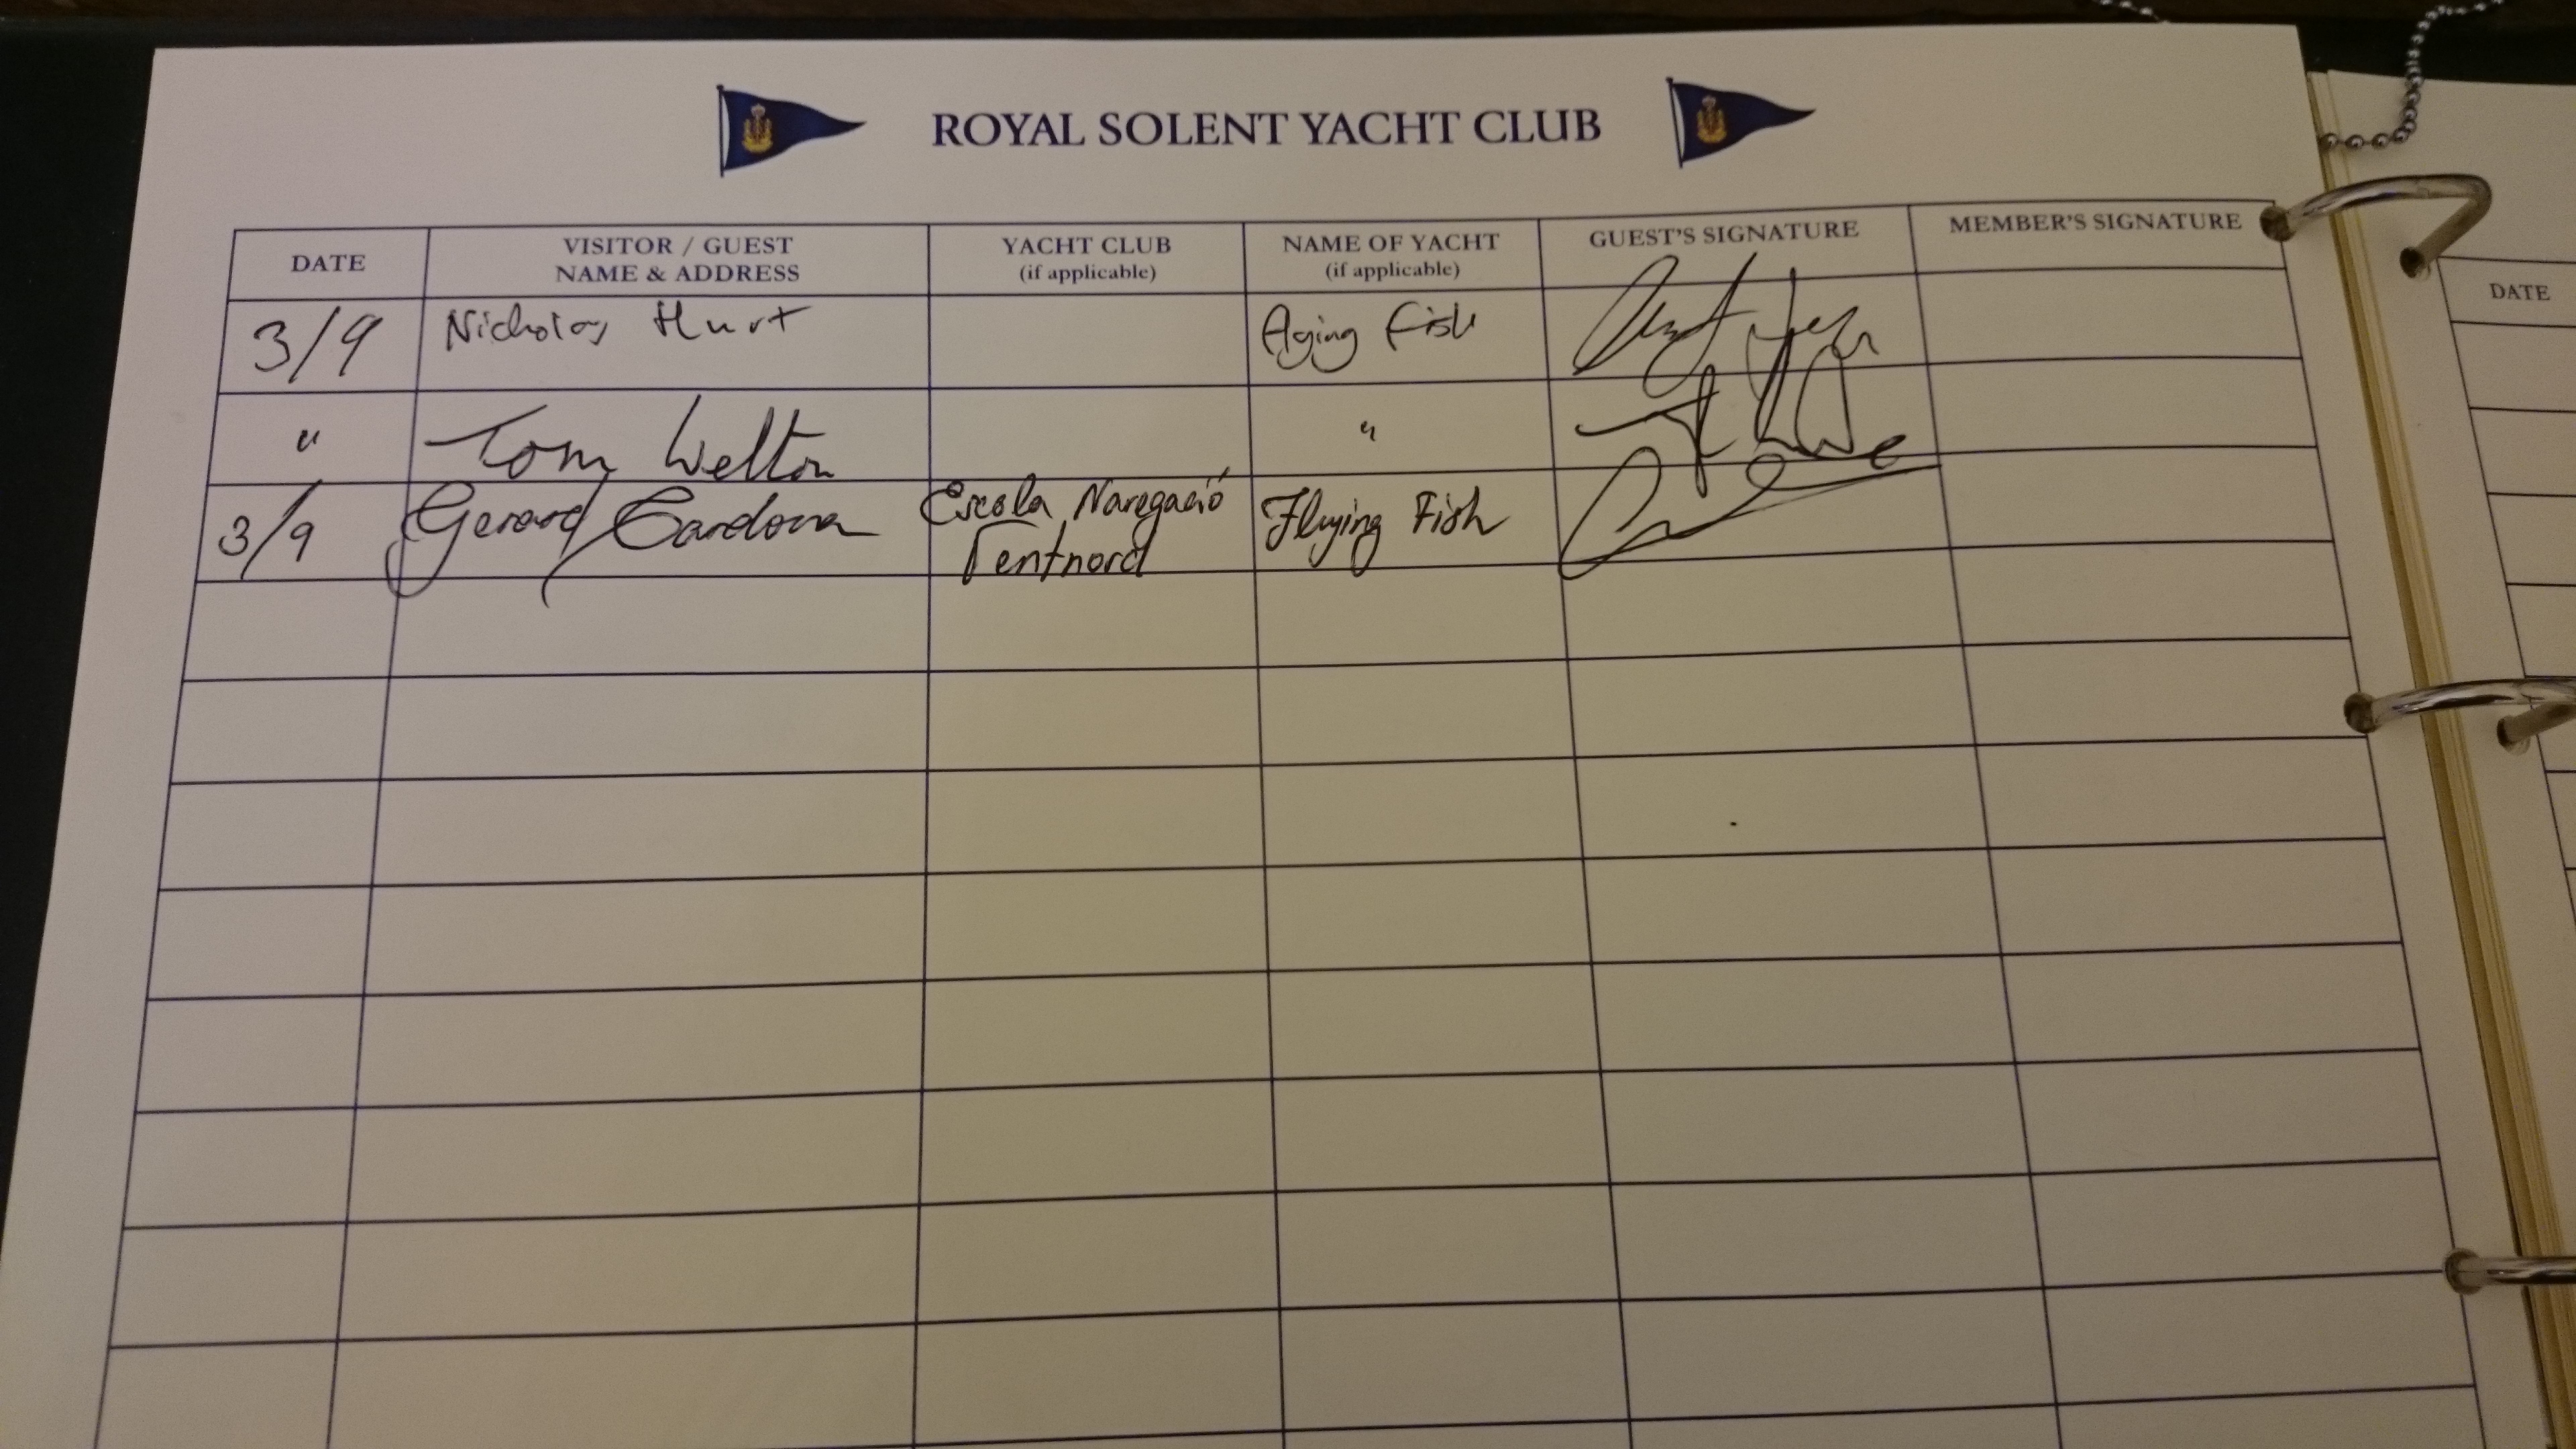 ROYAL SOLENT YACHT CLUB
DATE
VISITOR / GUEST
NAME & ADDRESS
YACHT CLUB
(if applicable)
NAME OF YACHT
(if applicable)
GUEST'S SIGNATURE
MEMBER'S SIGNATURE
3/9 Nicholas Hurt Flying Fish
" Tom Welton "
3/9 Gerard Cardona Escola Navegació Flying Fish
Ventnord
DATE